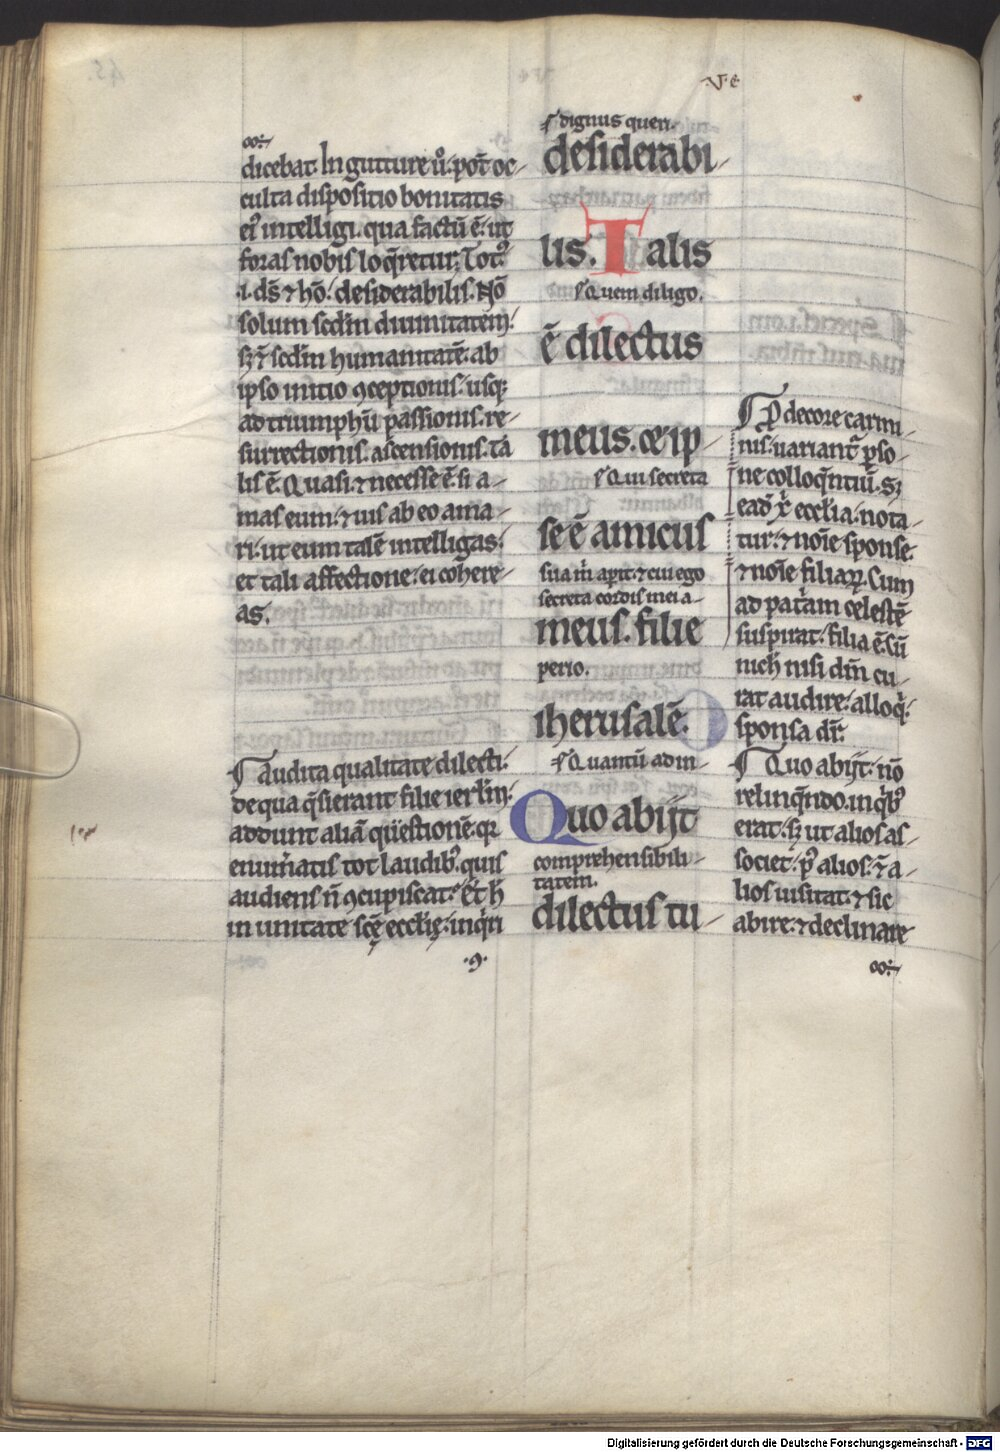 .V. e.
dicebat. In gutture ů. pot̄ oc-
culta dispositio bonitatis
eiꝰ intelligi. qua factū ē. ut
foras nobis loq̄retur. Totꝰ
.i. ds̄ ⁊ hō. desiderabilis. Nō
solum scdm̄ diuinitatem.
sꝫ ⁊ scdm̄ humanitatē. ab
ipso initio ꝯceptionis. usqꝫ
ad triumphū passionis. re-
surrectionis. ascensionis. ta-
lis ē. Quasi. ⁊ necesse ē. si a-
mas eum. ⁊ uis ab eo ama-
ri. ut eum talē intelligas.
et tali affectione. ei cohere-
as.
Audita qualitate dilecti.
de qua q̄sierant filie ierlm̄.
addunt aliā questionē. qr
enum̄atis tot laudibꝰ. quis
audiens n̄ ꝯcupiscat. Et h̄
in unitate scē ecclīę. inq̄ri
.9.
dignus queri.
desiderabi-
lis. Talis
Quem diligo.
ē dilectus
meus. ⁊ ip-
Qui secreta
se ē amicus
sua m̄ aperit. ⁊ cui ego
secreta cordis mei a-
meus. filie
perio.
iherusalē.
Quantū ad in-
Quo abijt
comprehensibili-
tatem.
dilectus tu-
Pro decore carmi-
nis. uariant̄ ꝑso-
ne colloq̄ntiū. Sꝫ
ead̄ xp̄i ecclīa. nota-
tur. ⁊ noīe sponse.
⁊ noīe filiaꝝ. Cum
ad pat̄am celestē
suspirat. filia ē. Cū
nich̄ nisi dm̄ cu-
rat audire. alloq̄.
sponsa dr̄.
Quo abijt. nō
relinq̄ndo. in q̄bꝰ
erat. sꝫ ut alios as-
societ. pꝰ alios. ⁊ a-
lios uisitat. ⁊ sic
abire. ⁊ declinare
Digitalisierung gefördert durch die Deutsche Forschungsgemeinschaft - DFG